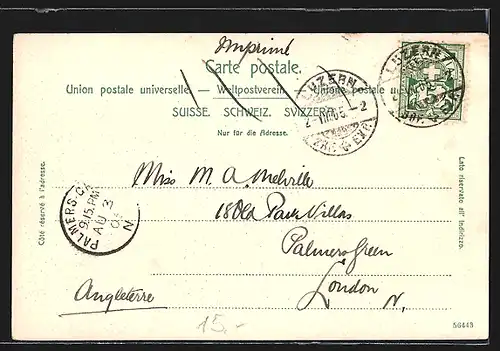 Imprimé
Carte postale.
Union postale universelle. — Weltpostverein. — Unione postale
SUISSE. SCHWEIZ. SVIZZERA.
Nur für die Adresse.
LUZERN
LUZERN
Côté réservé à l'adresse.
Lato riservato all' indirizzo.
PALMERS.
9.15.PM
AU 3
N
Miss M. A. Melville
Park Villas
Palmers Green
London N.
Angleterre
15.-
56443